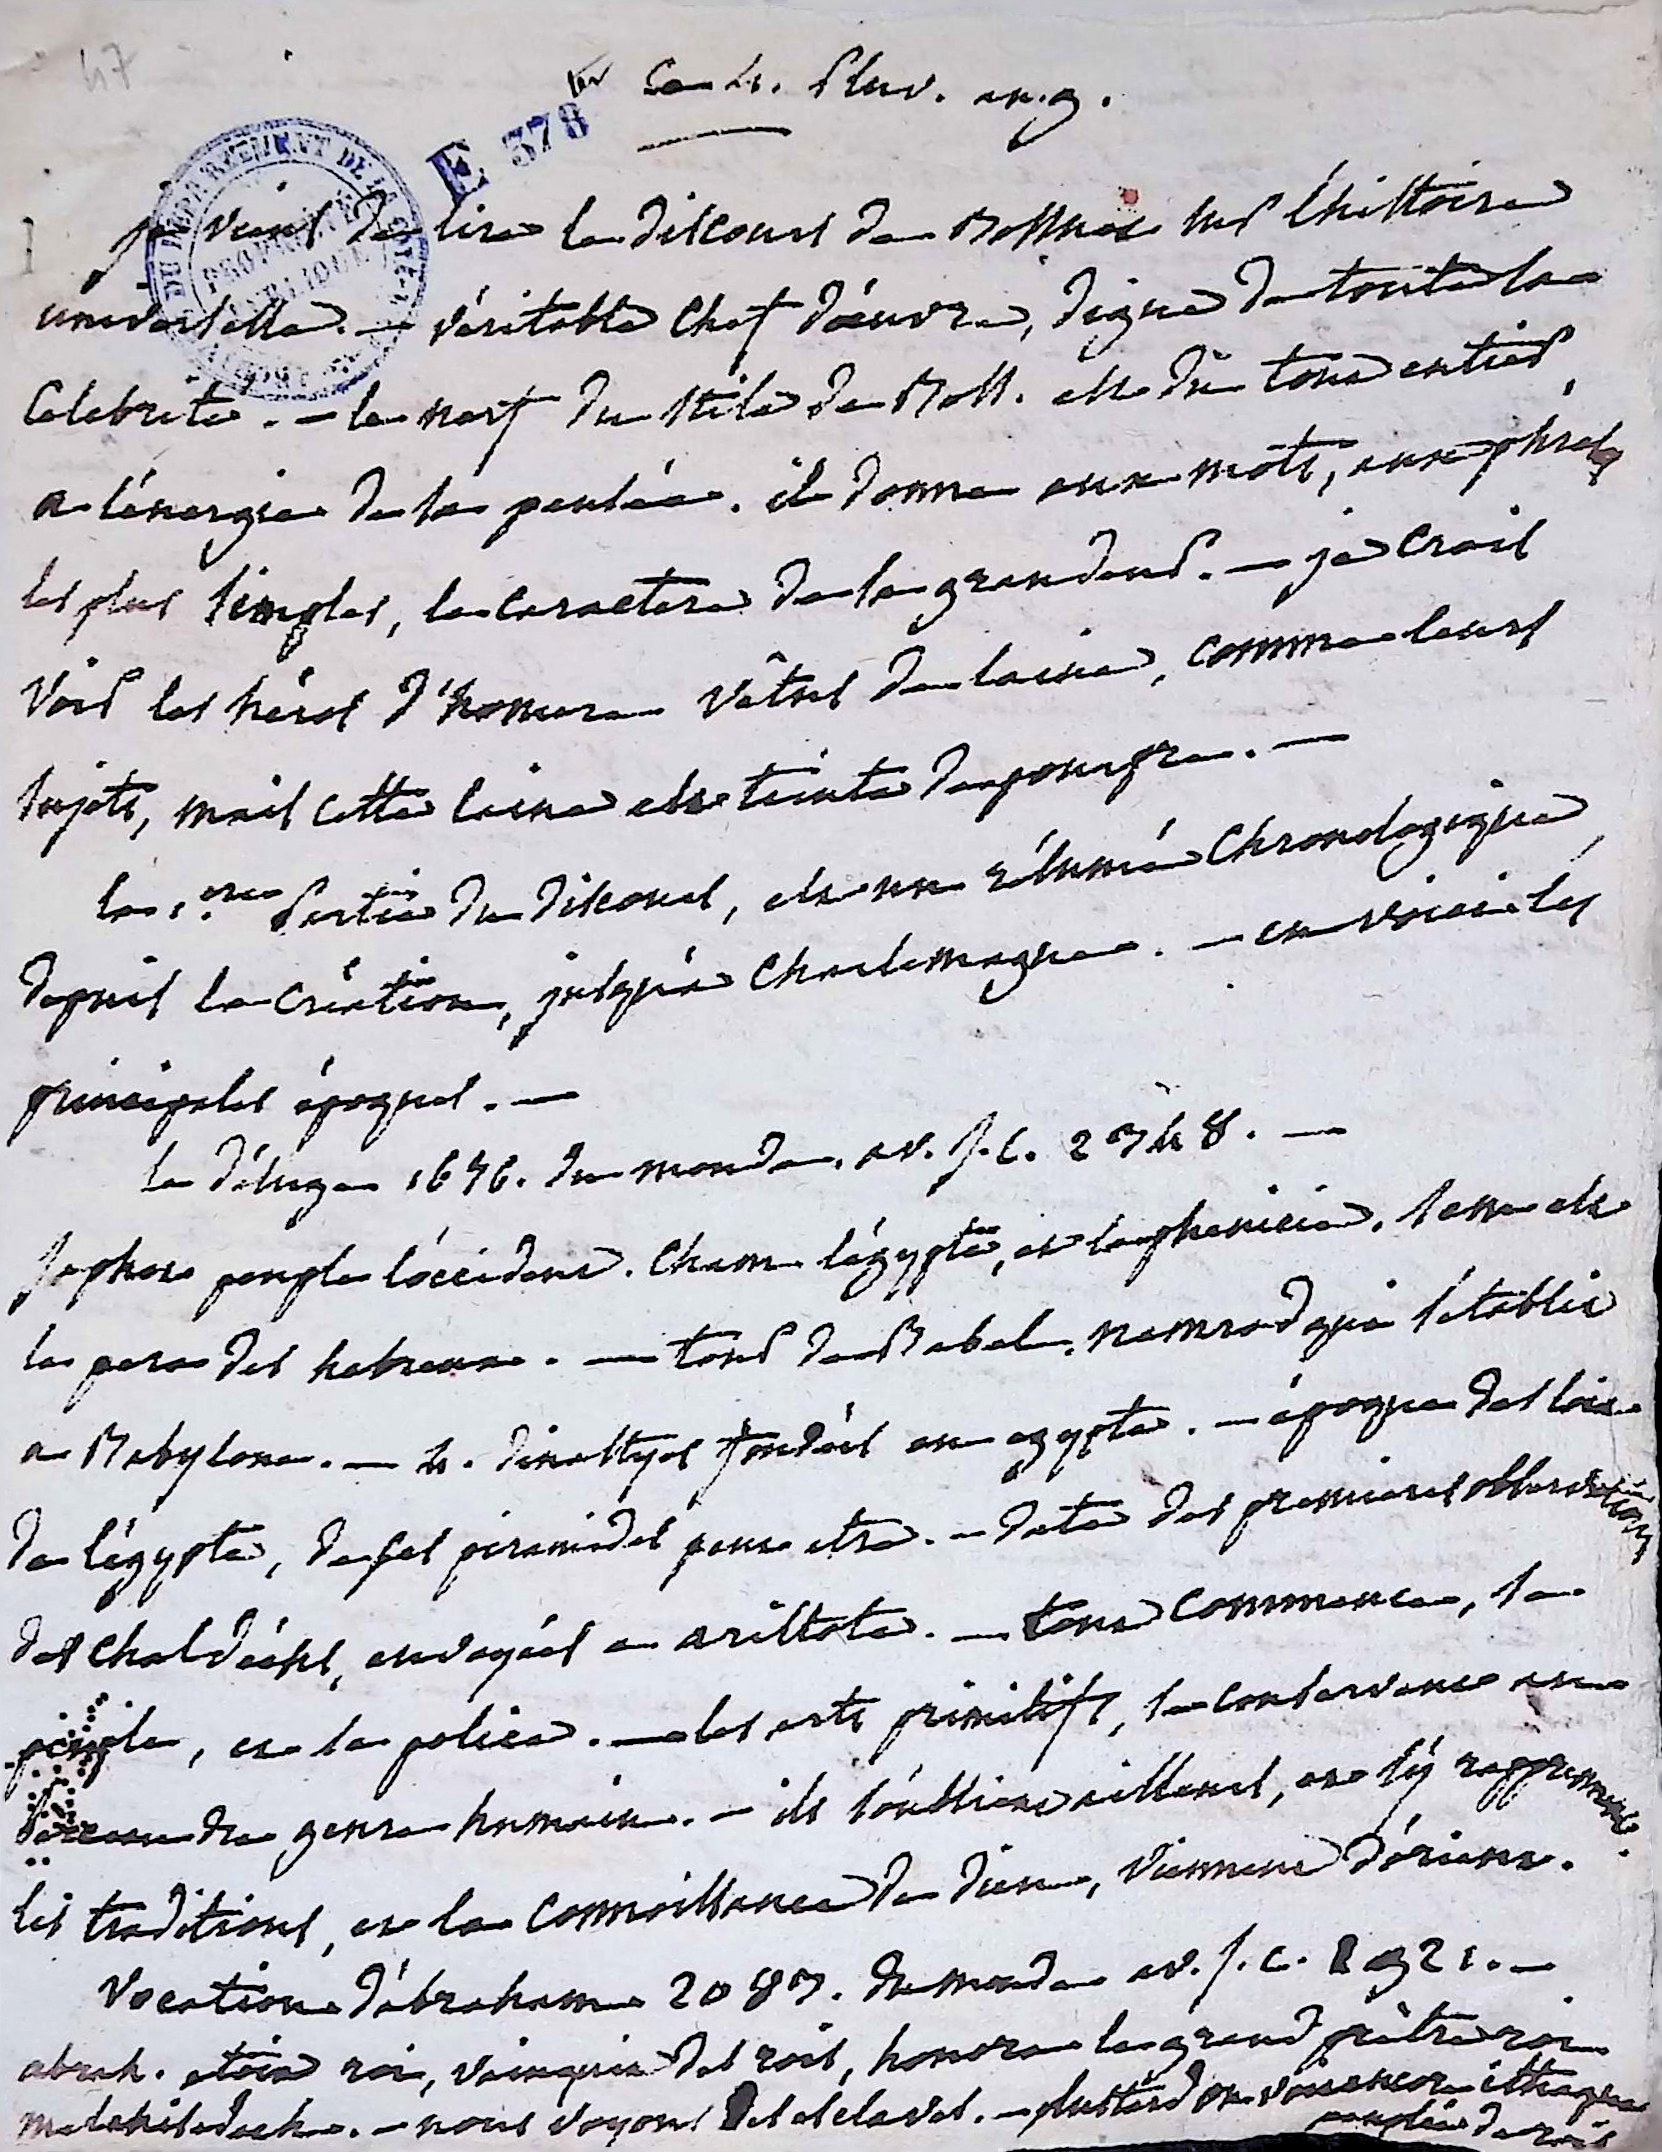 47
Ce 4. Pluv. an. 9.
E 378
DU DEPARTEMENT DE LA
PROPRIÉTÉ PUBLIQUE
je viens de lire le discours de Bossuet sur l'histoire
universelle. — véritable chef d'œuvre, digne de toute la
celebrite. — le nerf du stile de Boss. est du tout entier,
a l'énergie de la pensée. il donne aux mots, aux phrases
les plus simples, le caractere de la grandeur. — je crois
voir les héros d'homere vêtus de laine, comme leurs
sujets, mais cette laine est teinte de pourpre. —
la 1.ere Partie du discours, est un résumé chronologique,
depuis la création, jusqu'à Charlemagne. — en voici les
principales époques. —
le déluge 1656. du monde. av. J. C. 2348. —
Japhet peupla l'occident. Cham l'égypte, et la phenicie. Sem est
le pere des hebreux. — tour de Babel. nemrod qui s'etablit
a Babylone. — 4. dinastyes fondées en egypte. — époque des loix
de l'égypte, de ses piramides peut etre. — date des premieres observations
des chaldéens, envoyées a aristote. — tout commence, le
peuple, et la police. — les arts primitifs, se conservent au
berceau du genre humain. — ils s'oublient ailleurs, ou s'y rapprennent.
les traditions, et la connoissance de dieu, viennent d'orient.
Vocation d'abraham 2083. du monde av. J. C. 1921. —
abrah. etoit roi, vainquit des rois, honora le grand prêtre roi
melchisedech. — nous voyons des esclaves. — plus tard on voit encor ithaque
peuplée de rois